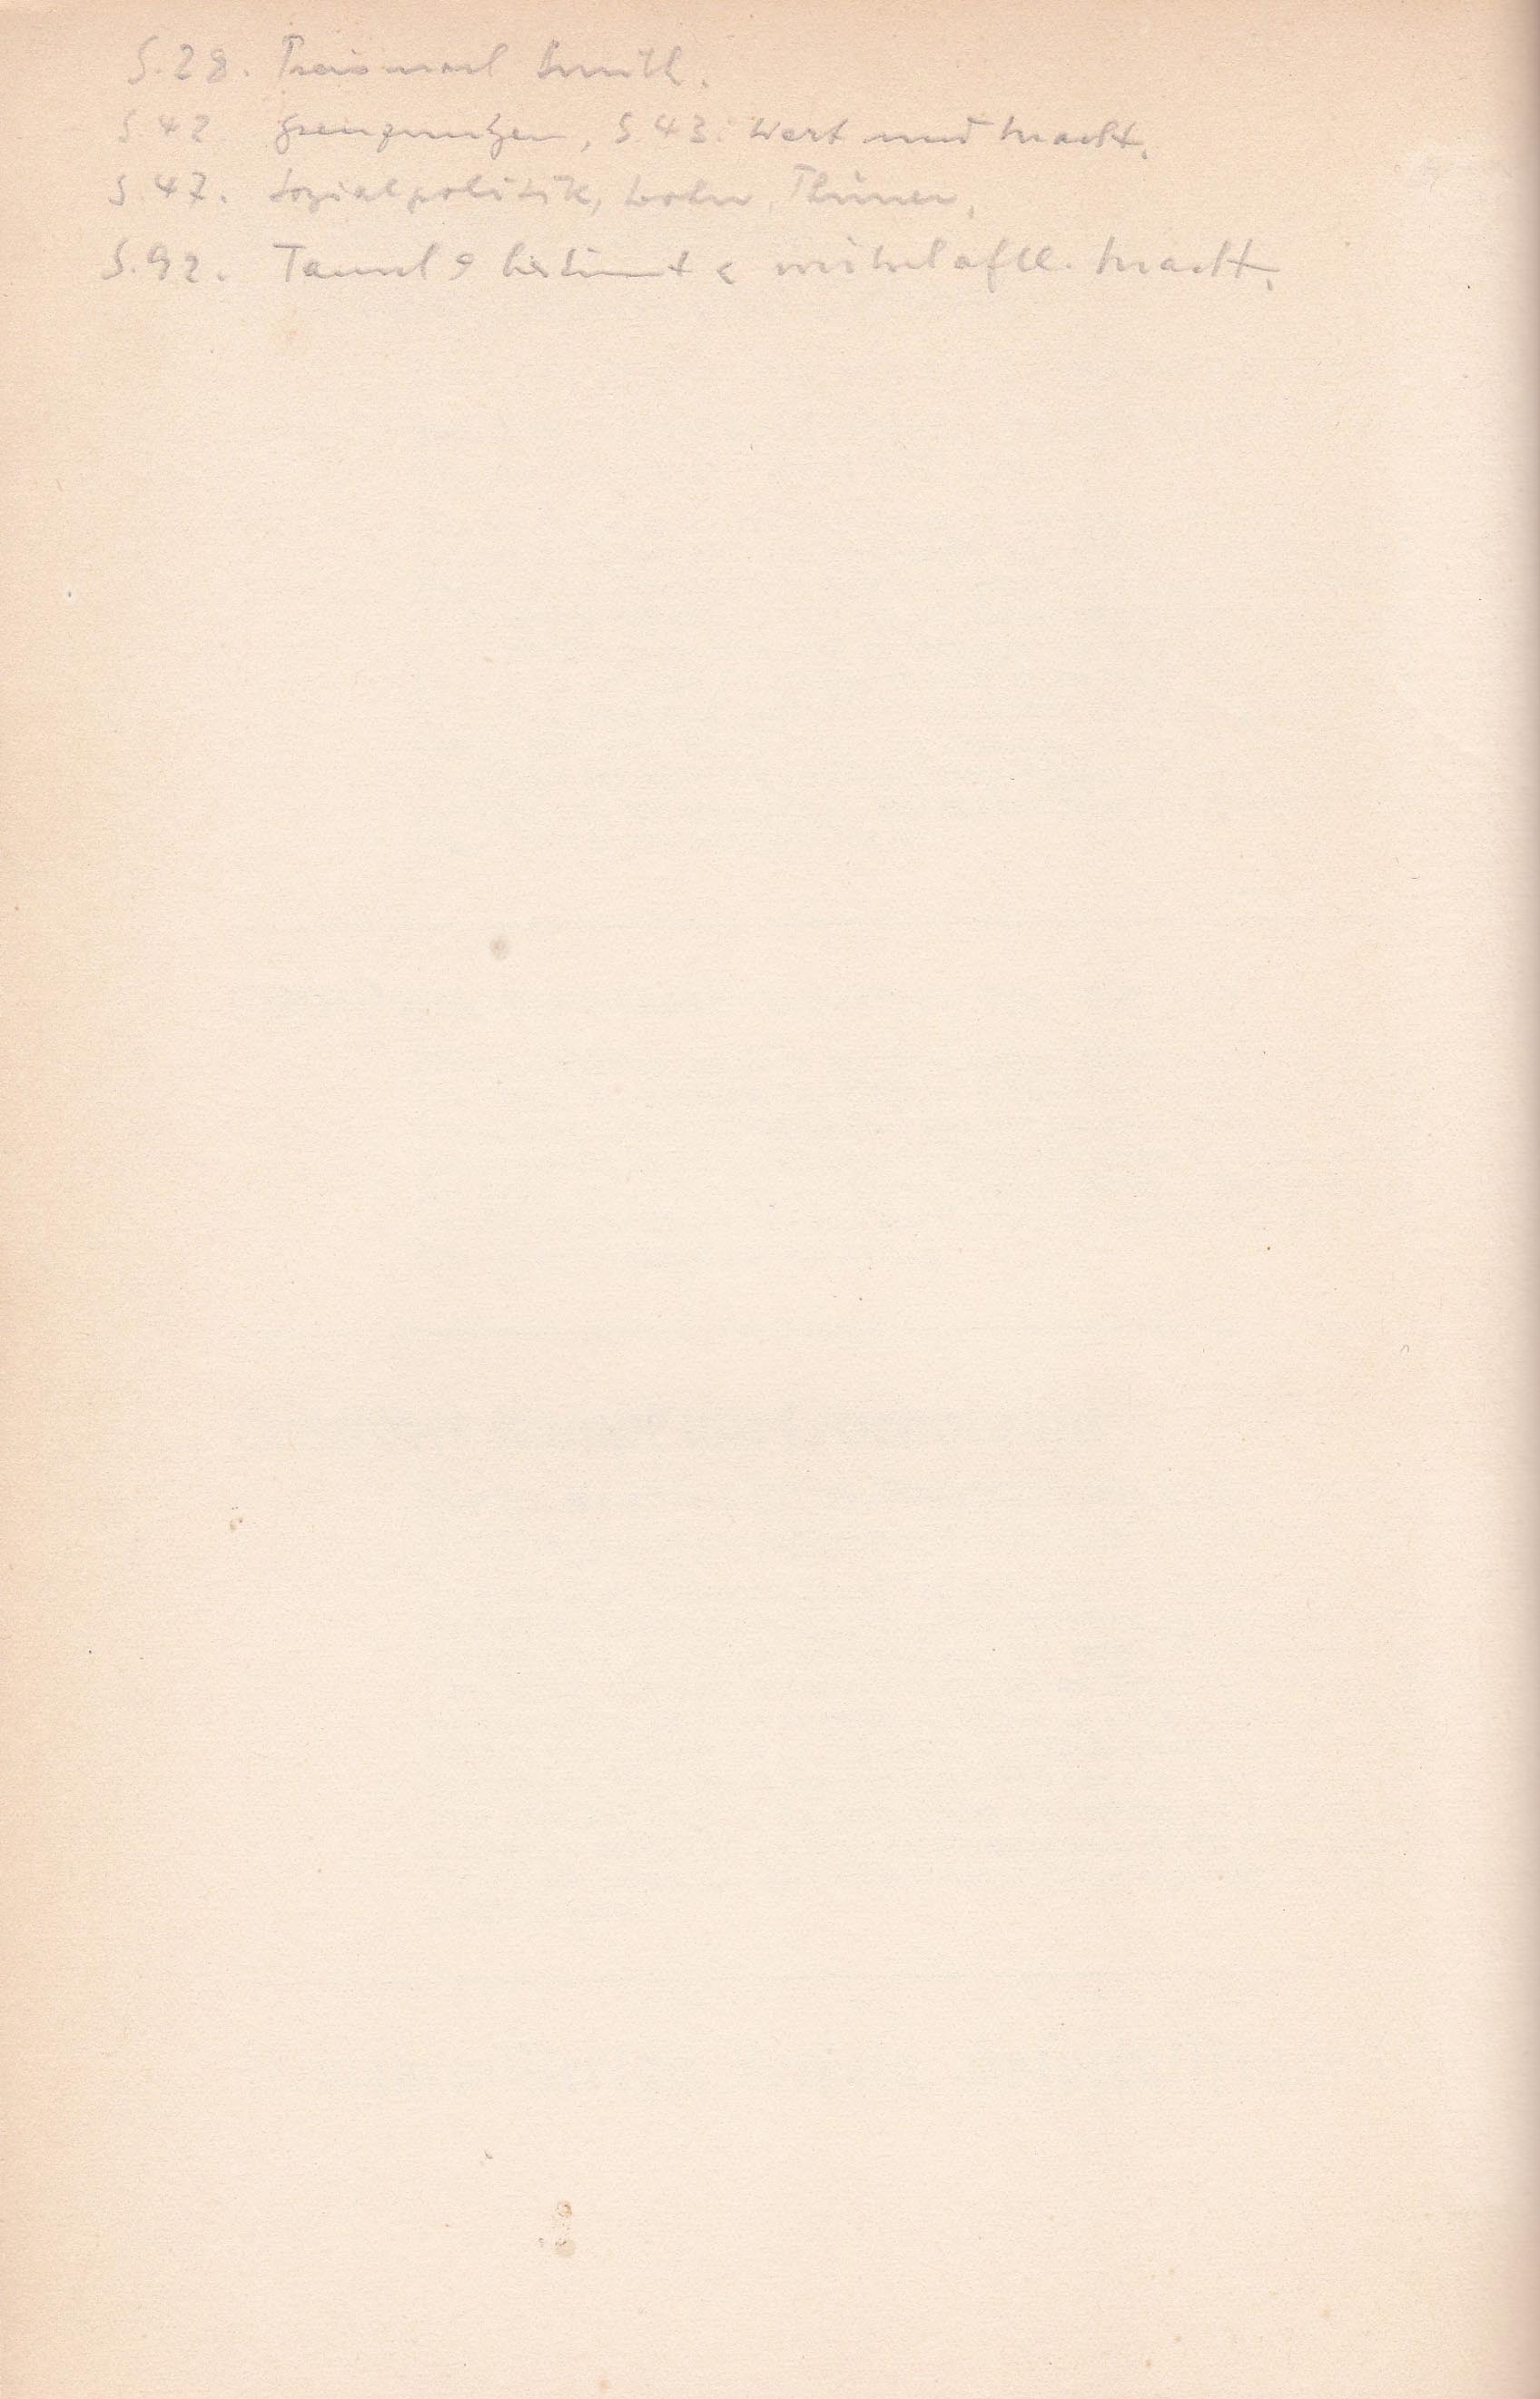 S. 28. Preis nach Smith.
S. 42 Grenznutzen, S. 43: Wert und Macht.
S. 47. Sozialpolitik, Lohn, Thünen,
S. 92. Tausch bestimmt wirtschaftl. Macht.